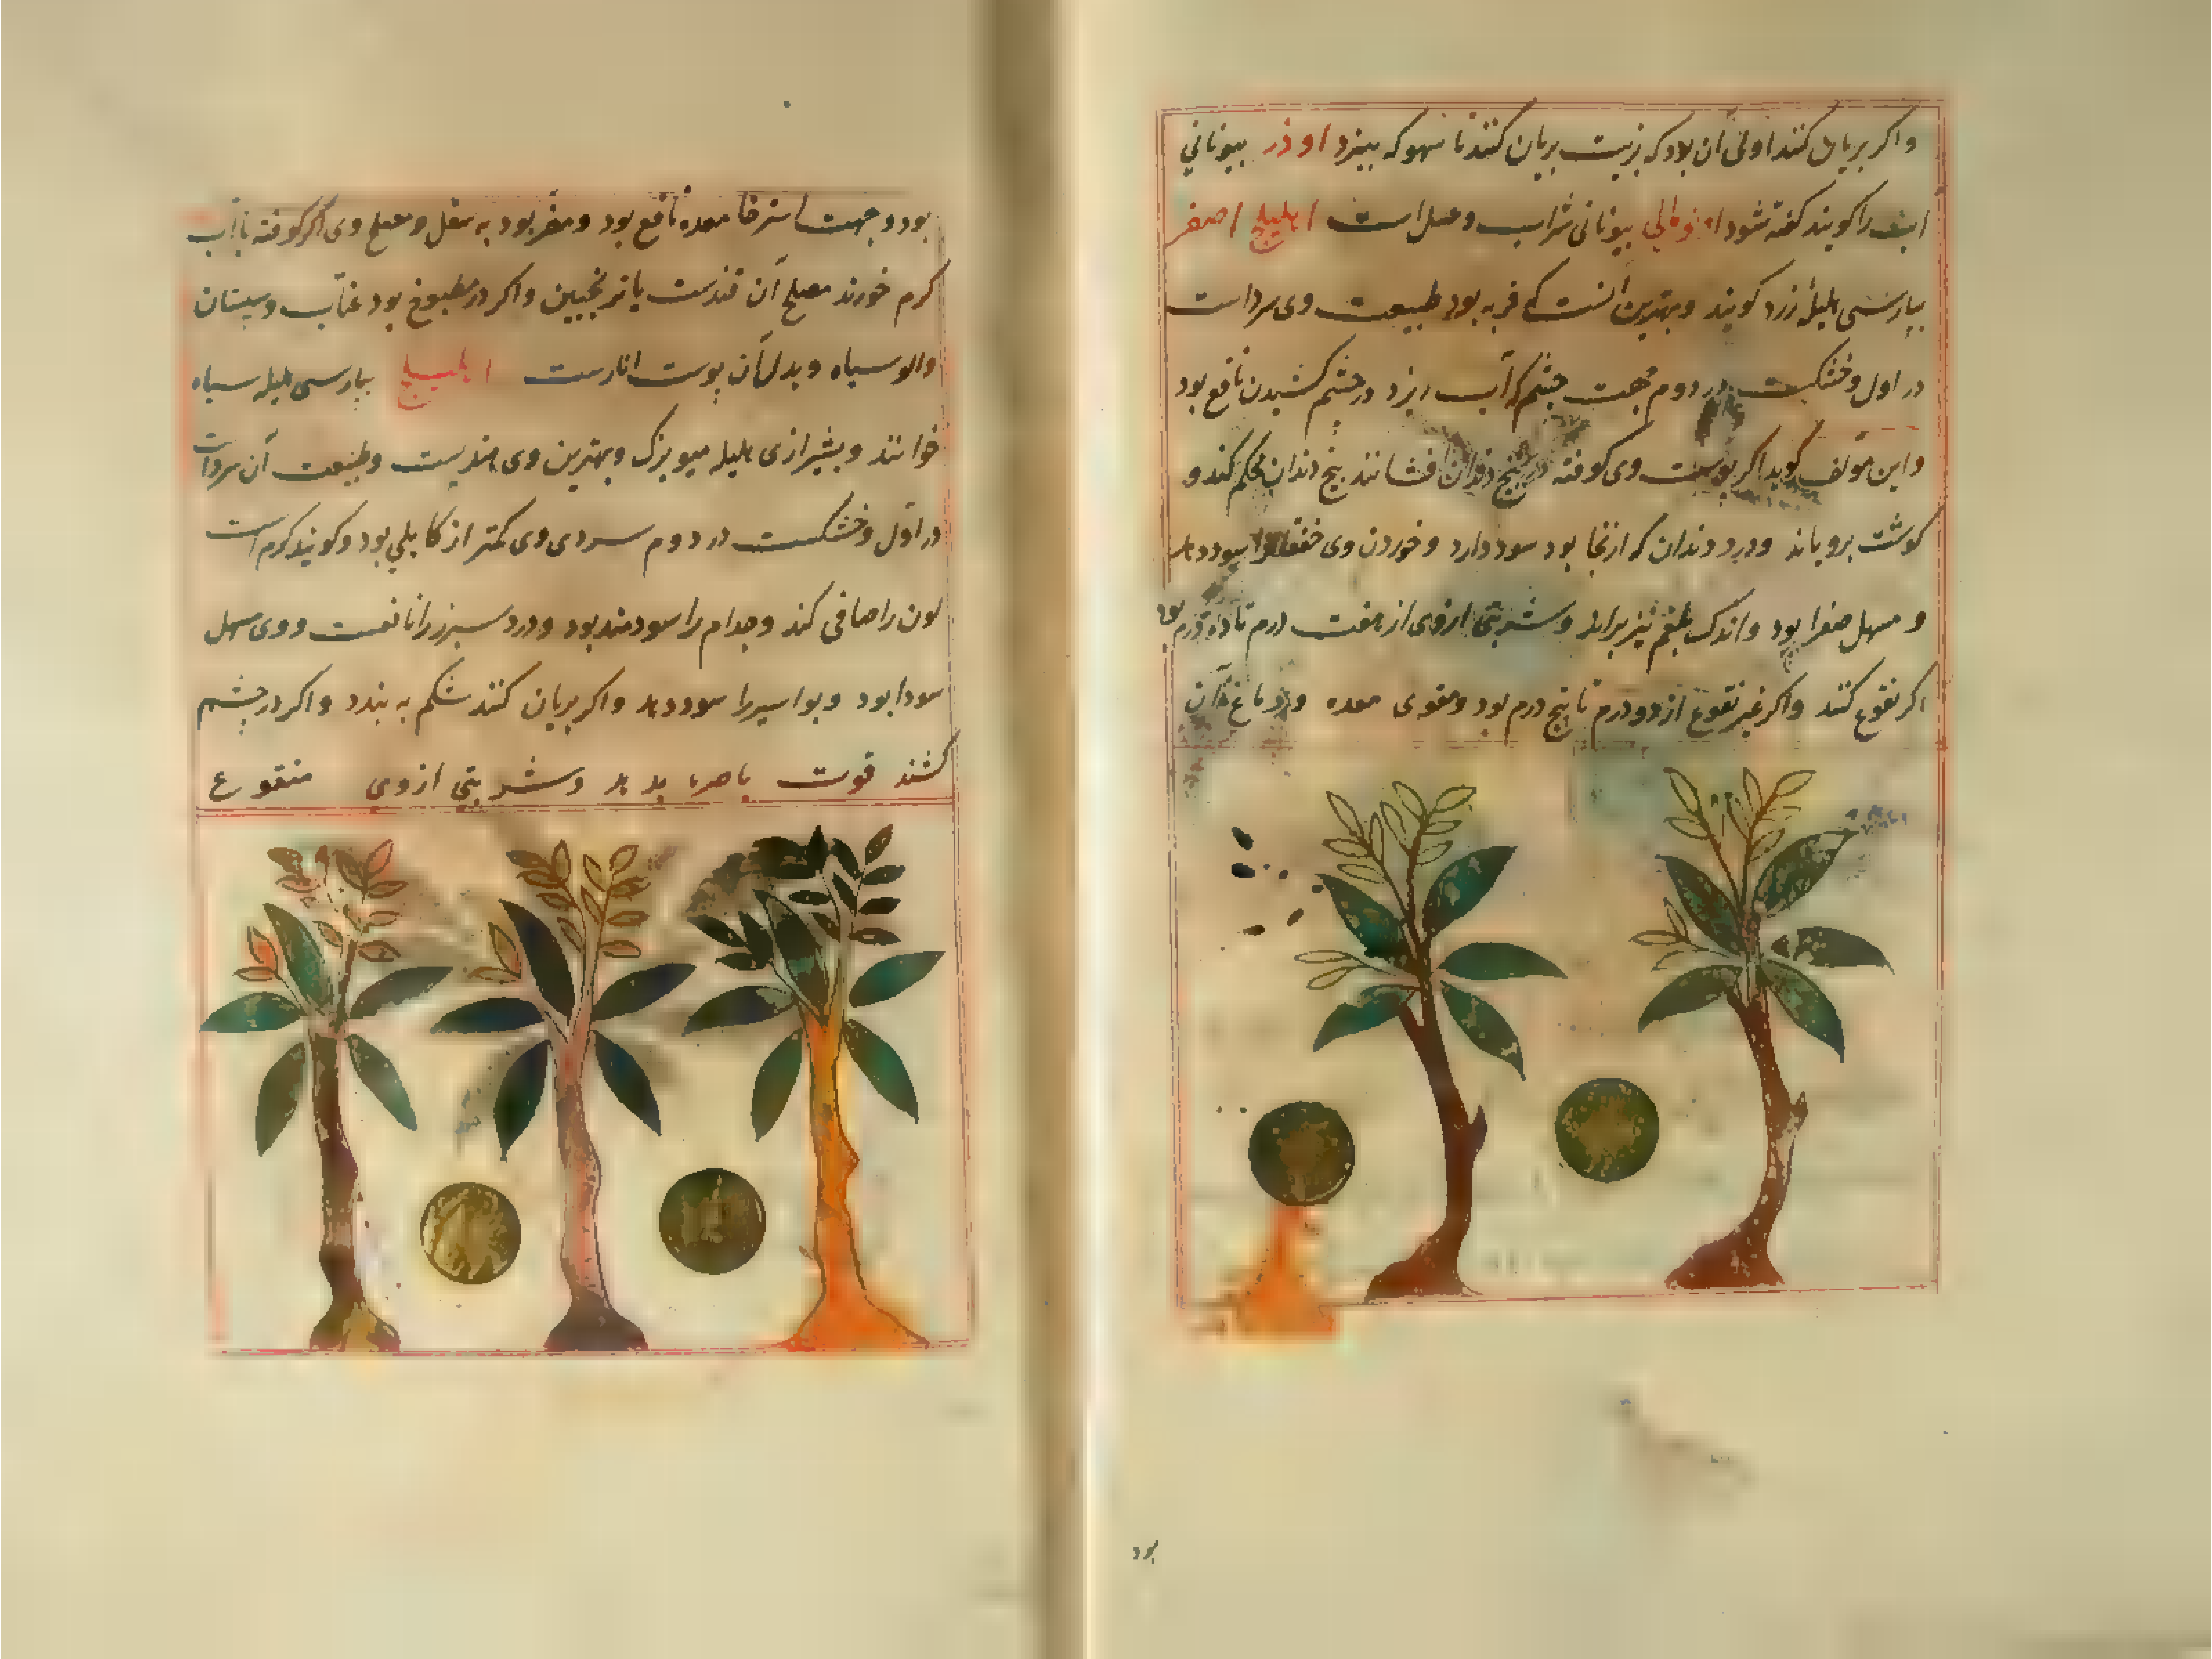 واکر بریان کنند اولی آن بود که بزیت بریان کنند تا سهوکه ببرد او ذر بیونانی
ابنفراکویند کفته شود اونومالی بیونانی شراب و عسل است اهلیلج اصفر
بپارسی هلیلهٔ زرد کویند و بهترین آنست که فربه بود طبیعت وی سرد است
در اول و خشکست در دوم جهت چشم که آب ریزد در چشم کشیدن نافع بود
و این مؤلف کوید اکر پوست وی کوفته در بیخ دندان افشانند بیخ دندان محکم کند و
کوشت برویاند و درد دندان که از آنجا بود سود دارد و خوردن وی خفقانرا سود دهد
و مسهل صفرا بود و اندک بلغم نیز براند و شربتی از وی از هفت درم تا ده درم بود
اکر نقوع کنند واکر غیر نقوع از دو درم تا پنج درم بود و مقوی معده و دماغ آن
بود
بود و جهت استرخا معده نافع بود و مضر بود به سفل و مصلح وی اکر کوفته با آب
کرم خورند مصلح آن قندست یا ترنجبین و اکر در مطبوخ بود عناب و سپستان
والو سیاه و بدل آن پوست انارست اهلیلج بپارسی هلیله سیاه
خوانند و بشیرازی هلیله میویزک و بهترین وی هندیست و طبیعت آن سرد است
در اول و خشکست در دوم سردی وی کمتر از کابلی بود و کویند کرم است
لون را صافی کند و جدام را سودمند بود و درد سپرز را نافعست و وی مسهل
سودا بود و بواسیر را سود دهد و اکر بریان کنند شکم به بندد و اکر در چشم
کشند قوت باصره بدهد و شربتی از وی منقوع